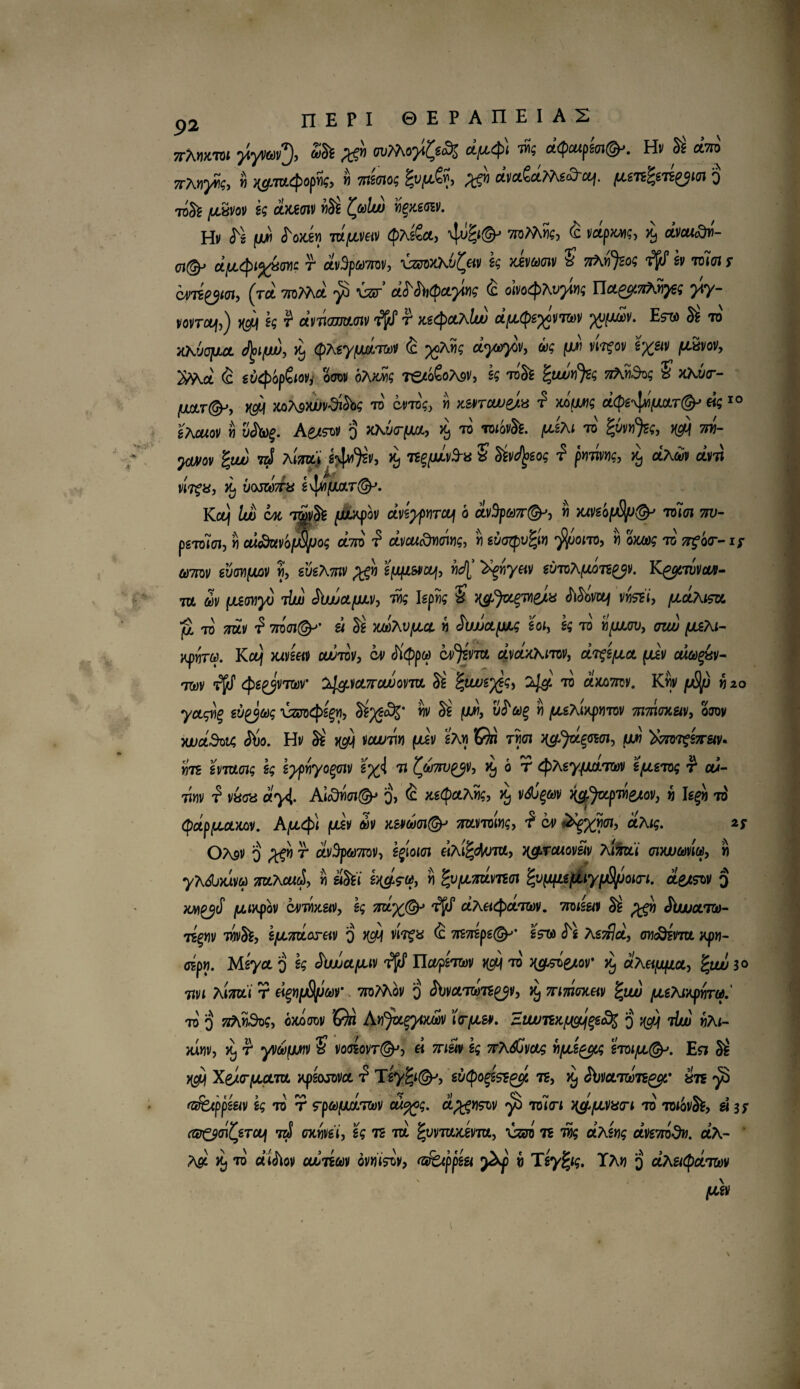 92 ΠΕΡΙ ΘΕΡΑΠΕΙΑΣ
πληκτοι γίγνων), ὧδε χρὴ συλλογίζεσθαι ἀμφὶ τῆς ἀφαιρέσιος. Ην δὲ ἀπὸ
πληγῆς, ἢ καταφορῆς, ἢ πέσιος ξυμβῇ, χρὴ ἀναβάλλεσθαι. μετεξετέροισι ὃ
τόδε μοῦνον ἐς ἄκεσιν ἠδὲ ζωὴν ἤρκεσεν.
Ην δὲ μὴ δοκέῃ τάμνειν φλέβα, ψύξιος πολλῆς, καὶ νάρκης, καὶ ἀναισθη-
σίης ἀμφιχούσης τ ἀνθρωπον, ὑποκλύζειν ἐς κένωσιν τοῦ πλήθεος τῶν ἐν τοῖσι
ἐντέροισι, (τὰ πολλὰ γὸ ὑπ' ἀδδηφαγίης καὶ οἰνοφλυγίης Παραπληγες γίγ-
νονται,) καὶ ἐς τ ἀντίσπασιν τῶν τ κεφαλὴν ἀμφεχόντων χυμῶν. Εστω δὲ τὸ
κλύσμα δριμὺ, καὶ φλεγμάτων καὶ χολῆς ἀγωγὸν, ὡς μὴ νίτρον ἔχειν μοῦνον,
ἀλλὰ καὶ εὐφόρβιον, ὅσον ὁλκῆς τριόβολον, ἐς τόδε ξυνῆθες πλῆθος τοῦ κλύσ-
ματος, καὶ κολοκυνθίδος τὸ ἐντὸς, ἢ κενταυρείου τ κόμης ἀφέψηματος εἰς
ἔλαιον ἢ ὕδωρ. Αριστον ὃ κλύσμα, καὶ τὸ τοιόνδε. μέλι τὸ ξύνηθες, καὶ πή-
γανον ξὺν τῷ λίπαϊ ἑψηθὲν, καὶ τερμίνθου τοῦ δένδρεος τ ῥητίνης, καὶ ἁλῶν ἀντὶ
νίτρου, καὶ ὑσσώπου ἑψήματος.
Καὶ ἢν ἐκ τῶνδε μικρὸν ἀνέγρηται ὁ ἄνθρωπος, ἢ κινεόμενος τοῖσι πυ-
ρετοῖσι, ἢ αἰσθανόμενος ἀπὸ τ ἀναισθησίης, ἢ εὐσφυξίη γένοιτο, ἢ ὅκως τὸ πρόσ-
ωπον εὔσημον ᾖ, εὔελπιν χρὴ ἔμμεναι, ἠδ' ἀρήγειν εὐτολμότερον. Κρατύναν-
τα ὦν μεσηγὺ τὴν δύναμιν, τῆς Ιερῆς τοῦ καθαρτηρίου διδόναι νήστεϊ, μάλιστα
μ τὸ πᾶν τ πόσιος· εἰ δὲ κώλυμα ἡ δύναμις ἔοι, ἐς τὸ ἥμισυ, σὺν μελι-
κρήτῳ. Καὶ κινέειν αὐτὸν, ἐν δίφρῳ ἐνθέντα ἀνάκλιτον, ἀτρέμα μὲν αἰωρούν-
των τῶν φερόντων· διαναπαύοντα δὲ ξυνεχὲς, διὰ τὸ ἄκοπον. Κἢν μὲν ἡ
γαστὴρ εὐρόως ὑποφέρῃ, δέχεσθαι· ἢν δὲ μὴ, ὕδωρ ἢ μελίκρητον πιπίσκειν, ὅσον
κυάθους δύο. Ην δὲ καὶ ναυτίη μὲν ἕλῃ ἐπὶ τῇσι καθάρσεσι, μὴ ἀποτρέπειν.
ἥτε ἔντασις ἐς ἐγρήγορσιν ἔχει τι ζώπυρον, καὶ ὁ τ φλεγμάτων ἔμετος τ αἰ-
τίην τ νούσου ἄγει. Αἰσθήσιος ὃ, καὶ κεφαλῆς, καὶ νεύρων καθαρτήριον, ἡ Ιερὴ τὸ
φάρμακον. Αμφὶ μὲν ὦν κενώσιος παντοίης, τ ἐν ἀρχῇσι, ἅλις.
Ολον ὃ χρὴ τ ἄνθρωπον, ἐρίοισι εἱλίξαντα, καταιονεῖν λίπαϊ σικυωνίῳ, ἢ
γλευκίνῳ παλαιῷ, ἢ εἰδεῖ ἑκάστῳ, ἢ ξυμπάντεσι ξυμμεμιγμένοισι. ἄριστον ὃ
κηροῦ μικρὸν ἐντήκειν, ἐς πάχος τῶν ἀλειφάτων. ποιέειν δὲ χρὴ δυνατω-
τέρην τήνδε, ἐμπάσσειν ὃ καὶ νίτρου καὶ πεπέριος· ἔστω δὲ λεπτὰ, σησθέντα κρη-
σέρῃ. Μέγα ὃ ἐς δύναμιν τῶν Παρέτων καὶ τὸ καστόριον· καὶ ἄλειμμα, ξὺν
τινι λίπαϊ τ εἰρημένων· πολλὸν ὃ δυνατώτερον, καὶ πιπίσκειν ξὺν μελικρήτῳ.
τὸ ὃ πλῆθος, ὁκόσον ἐπὶ Ληθαργικῶν ἴσμεν. Ξυντεκμαίρεσθαι ὃ καὶ τὴν ἡλι-
κίην, καὶ τ γνώμην τοῦ νοσέοντος, εἰ πιεῖν ἐς πλεῦνας ἡμέρας ἕτοιμος. Εστι δὲ
καὶ Χρίσματα κρέσσονα τ Τέγξιος, εὐφορέστερα τε, καὶ δυνατώτερα· οὔτε γὸ
περιρρέειν ἐς τὸ τ στρωμάτων αἶσχος. ἄχρηστον γὸ τοῖσι κάμνουσι τὸ τοιόνδε, εἰ
προσίζεται τῷ σκήνεϊ, ἔς τε τὰ ξυντακέντα, ὑπό τε τῆς ἀλέης ἀνεπόθη. ἀλ-
λὰ καὶ τὸ ἀΐδιον αὐτέων ὀνηϊστὸν, περιρρέει γὰρ ἡ Τέγξις. Υλη ὃ ἀλειφάτων
μὲν